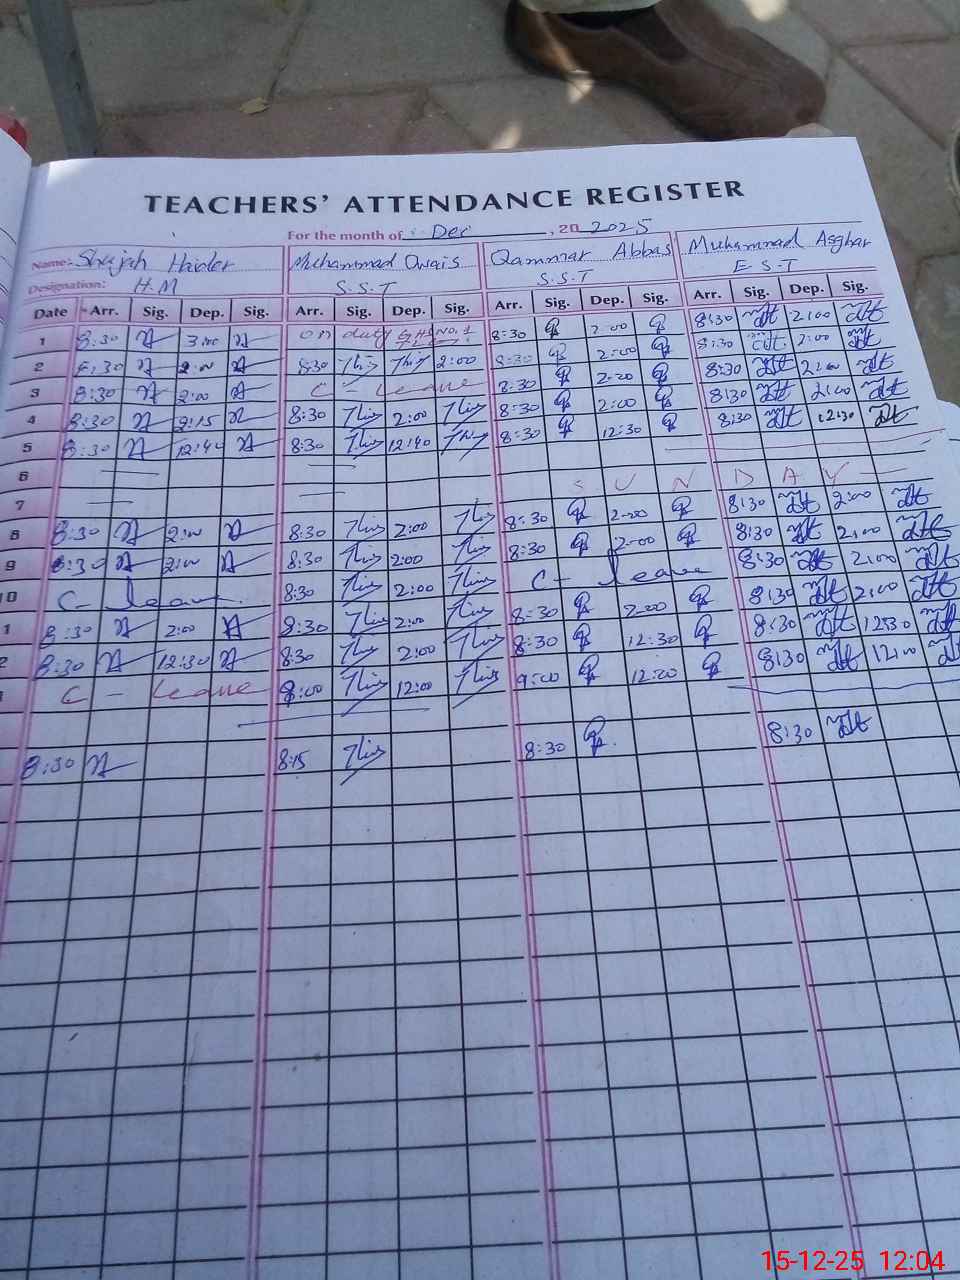 TEACHERS' ATTENDANCE REGISTER
For the month of Dec, 20 2025
Name:- Shujah Haider Muhammad Owais Qammar Abbas Muhammad Asghar
Designation: H.M S.S.T S.S.T E.S.T
Date Arr. Sig. Dep. Sig. Arr. Sig. Dep. Sig. Arr. Sig. Dep. Sig. Arr. Sig. Dep. Sig.
1 8:30 3:00 on duty GHS No. 1 8:30 2:00 8:30 2:00
2 8:30 8:30 2:00 8:30 2:00 8:30 2:00
3 8:30 2:00 C - Leave 8:30 2:00 8:30 2:00
4 8:30 2:15 8:30 2:00 8:30 2:00 8:30 2:00
5 8:30 12:40 8:30 12:40 8:30 12:30 8:30 12:30
6
7 S U N D A Y
8 8:30 2:00 8:30 2:00 8:30 2:00 8:30 2:00
9 8:30 2:00 8:30 2:00 8:30 2:00 8:30 2:00
10 C - leave 8:30 2:00 C - leave 8:30 2:00
1 8:30 2:00 8:30 2:00 8:30 2:00 8:30 2:00
2 8:30 12:30 8:30 2:00 8:30 12:30 8:30 12:30
C - Leave 8:00 12:00 9:00 12:00 8:30 12:00
8:30 8:15 8:30 8:30
15-12-25 12:04